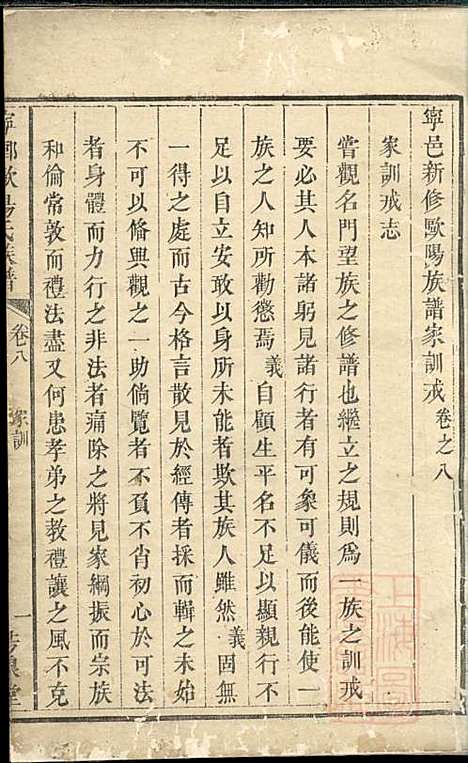 寧邑新修歐陽族譜家訓戒 卷之八
家訓戒志
嘗觀名門望族之修譜也繼立之規則爲一族之訓戒
要必其人本諸躬見諸行者有可象可儀而後能使一
族之人知所勸懲焉義自顧生平名不足以顯親行不
足以自立安敢以身所未能者欺其族人雖然義固無
一得之處而古今格言散見於經傳者採而輯之未始
不可以俻興觀之一助倘覽者不負不肖初心於可法
者身體而力行之非法者痛除之將見家綱振而宗族
和倫常敦而禮法盡又何患孝弟之教禮讓之風不克
寧鄉歐陽氏族譜 卷八 家訓 一 堂